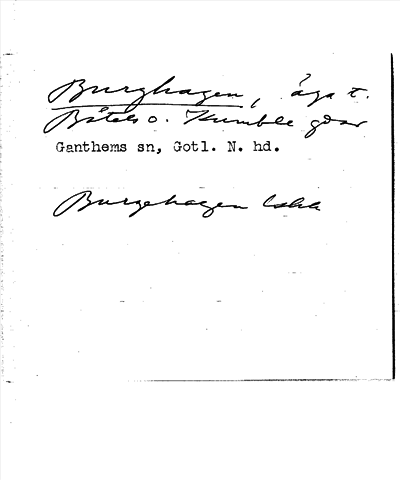 Burghagen, äga t.
Båtels o. Kumble gdar
Ganthems sn, Gotl. N. hd.
Burgehagen Lskh